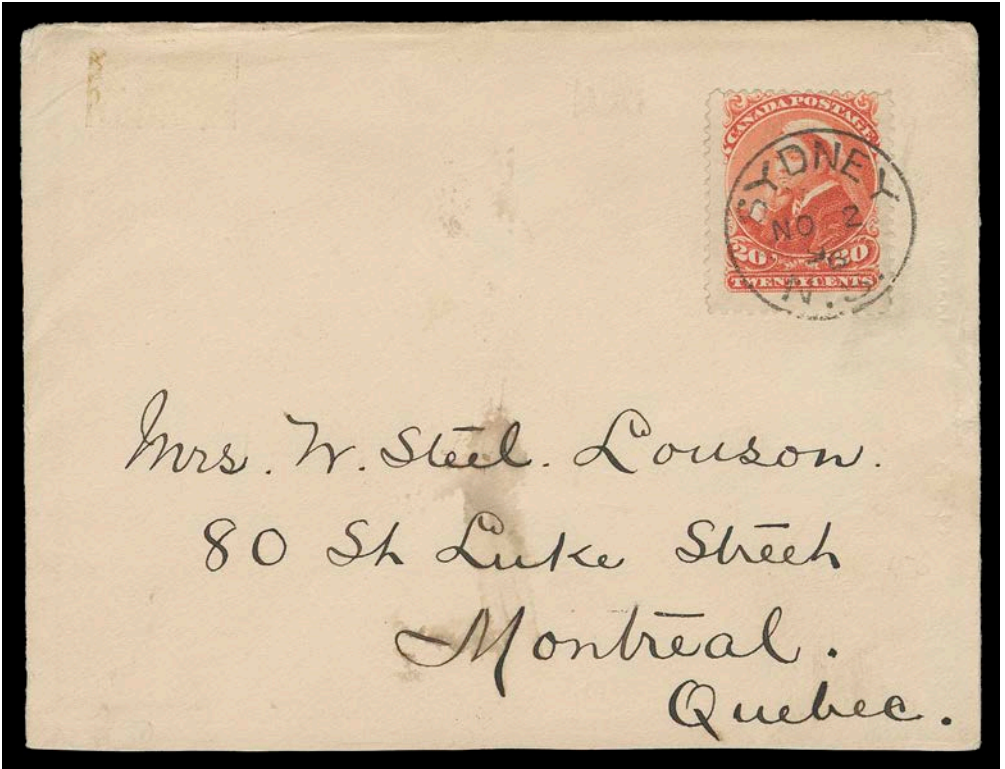 CANADA POSTAGE
20 20
TWENTY CENTS
SYDNEY
NO 2
N.S.
Mrs. W. Steel. Louson.
80 St Luke Street
Montreal.
Quebec.